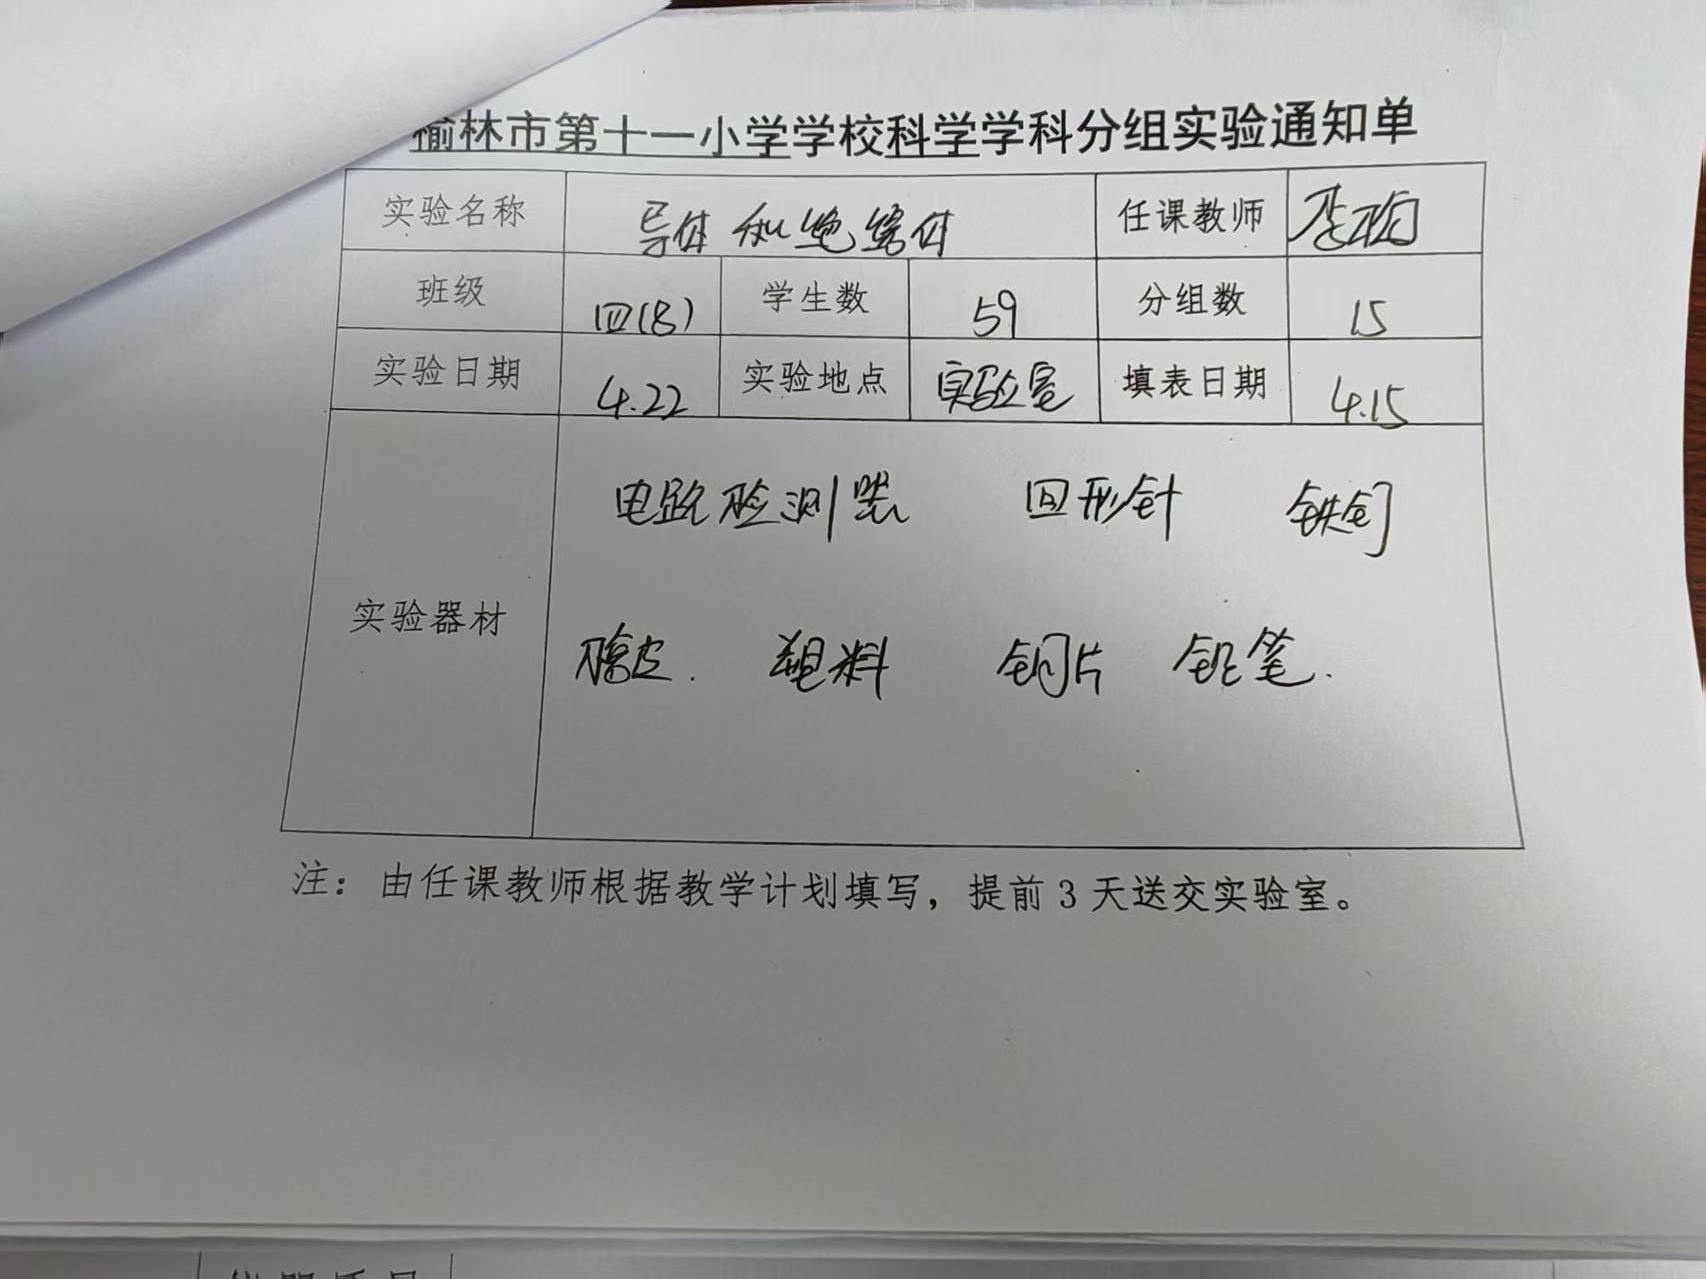 榆林市第十一小学学校科学学科分组实验通知单
实验名称 导体和绝缘体 任课教师
班级 四(8) 学生数 59 分组数 15
实验日期 4.22 实验地点 实验室 填表日期 4.15
实验器材
电路检测器 回形针 铁钉
橡皮. 塑料 铜片 铅笔.
注：由任课教师根据教学计划填写，提前3天送交实验室。